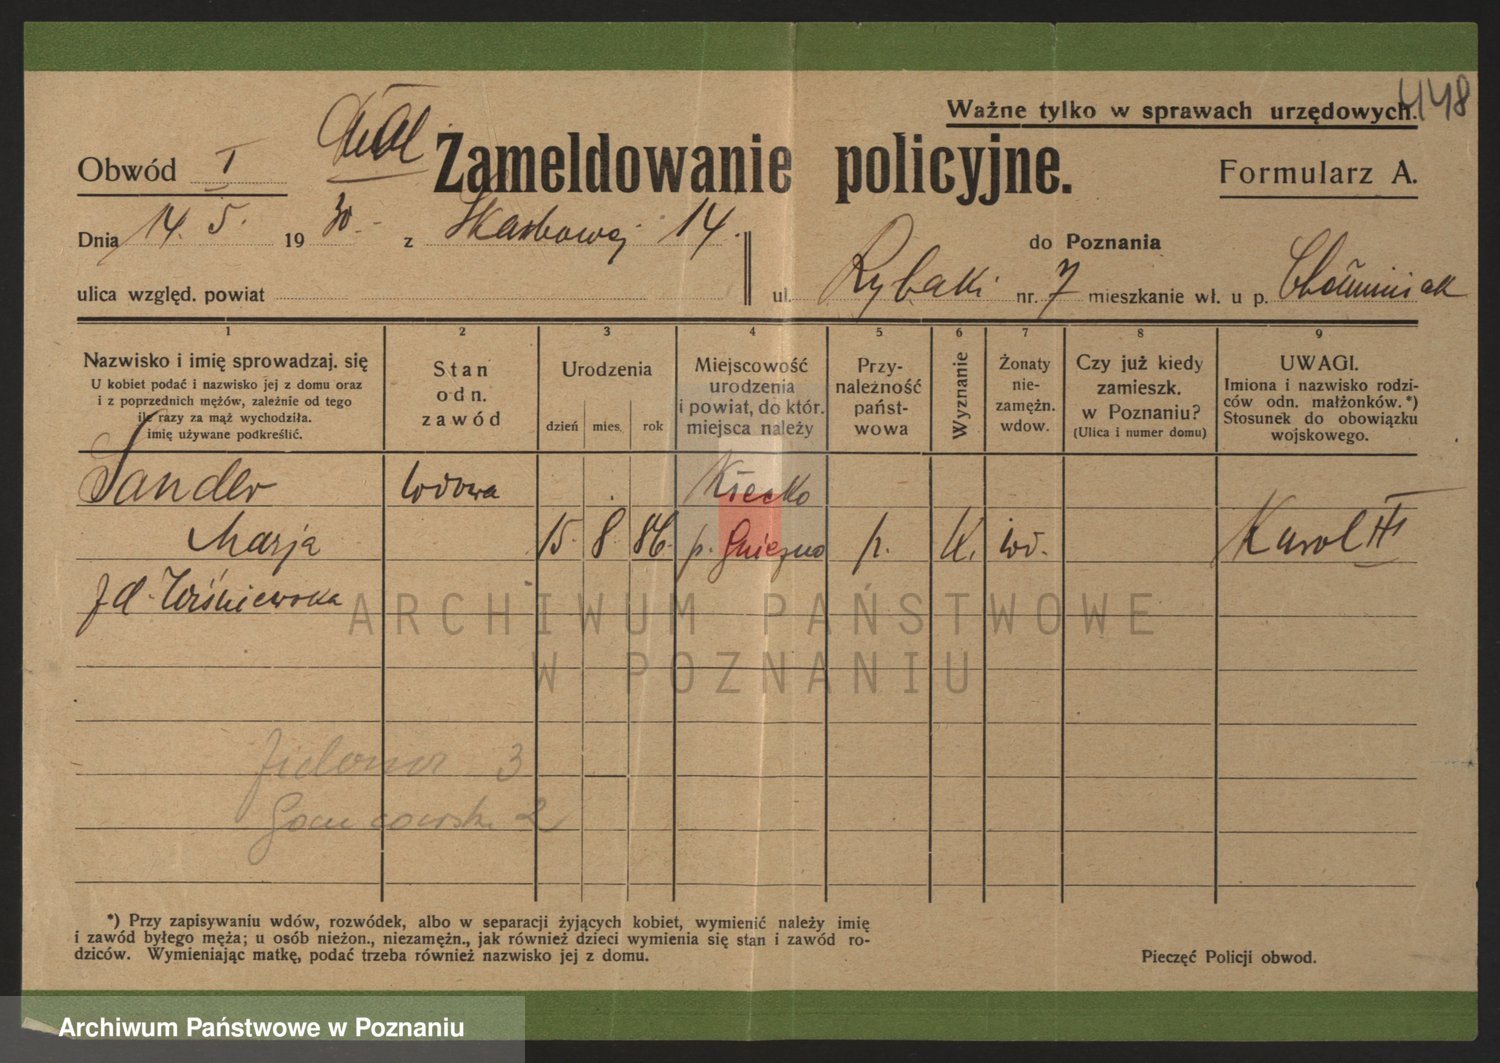 448
Ważne tylko w sprawach urzędowych.
Obwód I
Zameldowanie policyjne.
Formularz A.
Dnia 14. 5. 1930 z Skarbowej 14.
do Poznania
ulica względ. powiat
ul. Rybaki nr. 7 mieszkanie wł. u p.
1 2 3 4 5 6 7 8 9
Nazwisko i imię sprowadzaj. się
U kobiet podać i nazwisko jej z domu oraz
i z poprzednich mężów, zależnie od tego
ile razy za mąż wychodziła.
imię używane podkreślić.
Stan
odn.
zawód
Urodzenia
dzień mies. rok
Miejscowość
urodzenia
i powiat, do któr.
miejsca należy
Przy-
należność
państ-
wowa
Wyznanie
Żonaty
nie-
zamężn.
wdow.
Czy już kiedy
zamieszk.
w Poznaniu?
(Ulica i numer domu)
UWAGI.
Imiona i nazwisko rodzi-
ców odn. małżonków.*)
Stosunek do obowiązku
wojskowego.
Sander wdowa Kłecko
Marja 15. 8. 86. p. Gniezno p. K. wd. Karol
zd. Wiśniewska
ARCHIWUM PAŃSTWOWE
W POZNANIU
3
2
*) Przy zapisywaniu wdów, rozwódek, albo w separacji żyjących kobiet, wymienić należy imię
i zawód byłego męża; u osób nieżon., niezamężn., jak również dzieci wymienia się stan i zawód ro-
dziców. Wymieniając matkę, podać trzeba również nazwisko jej z domu.
Pieczęć Policji obwod.
Archiwum Państwowe w Poznaniu